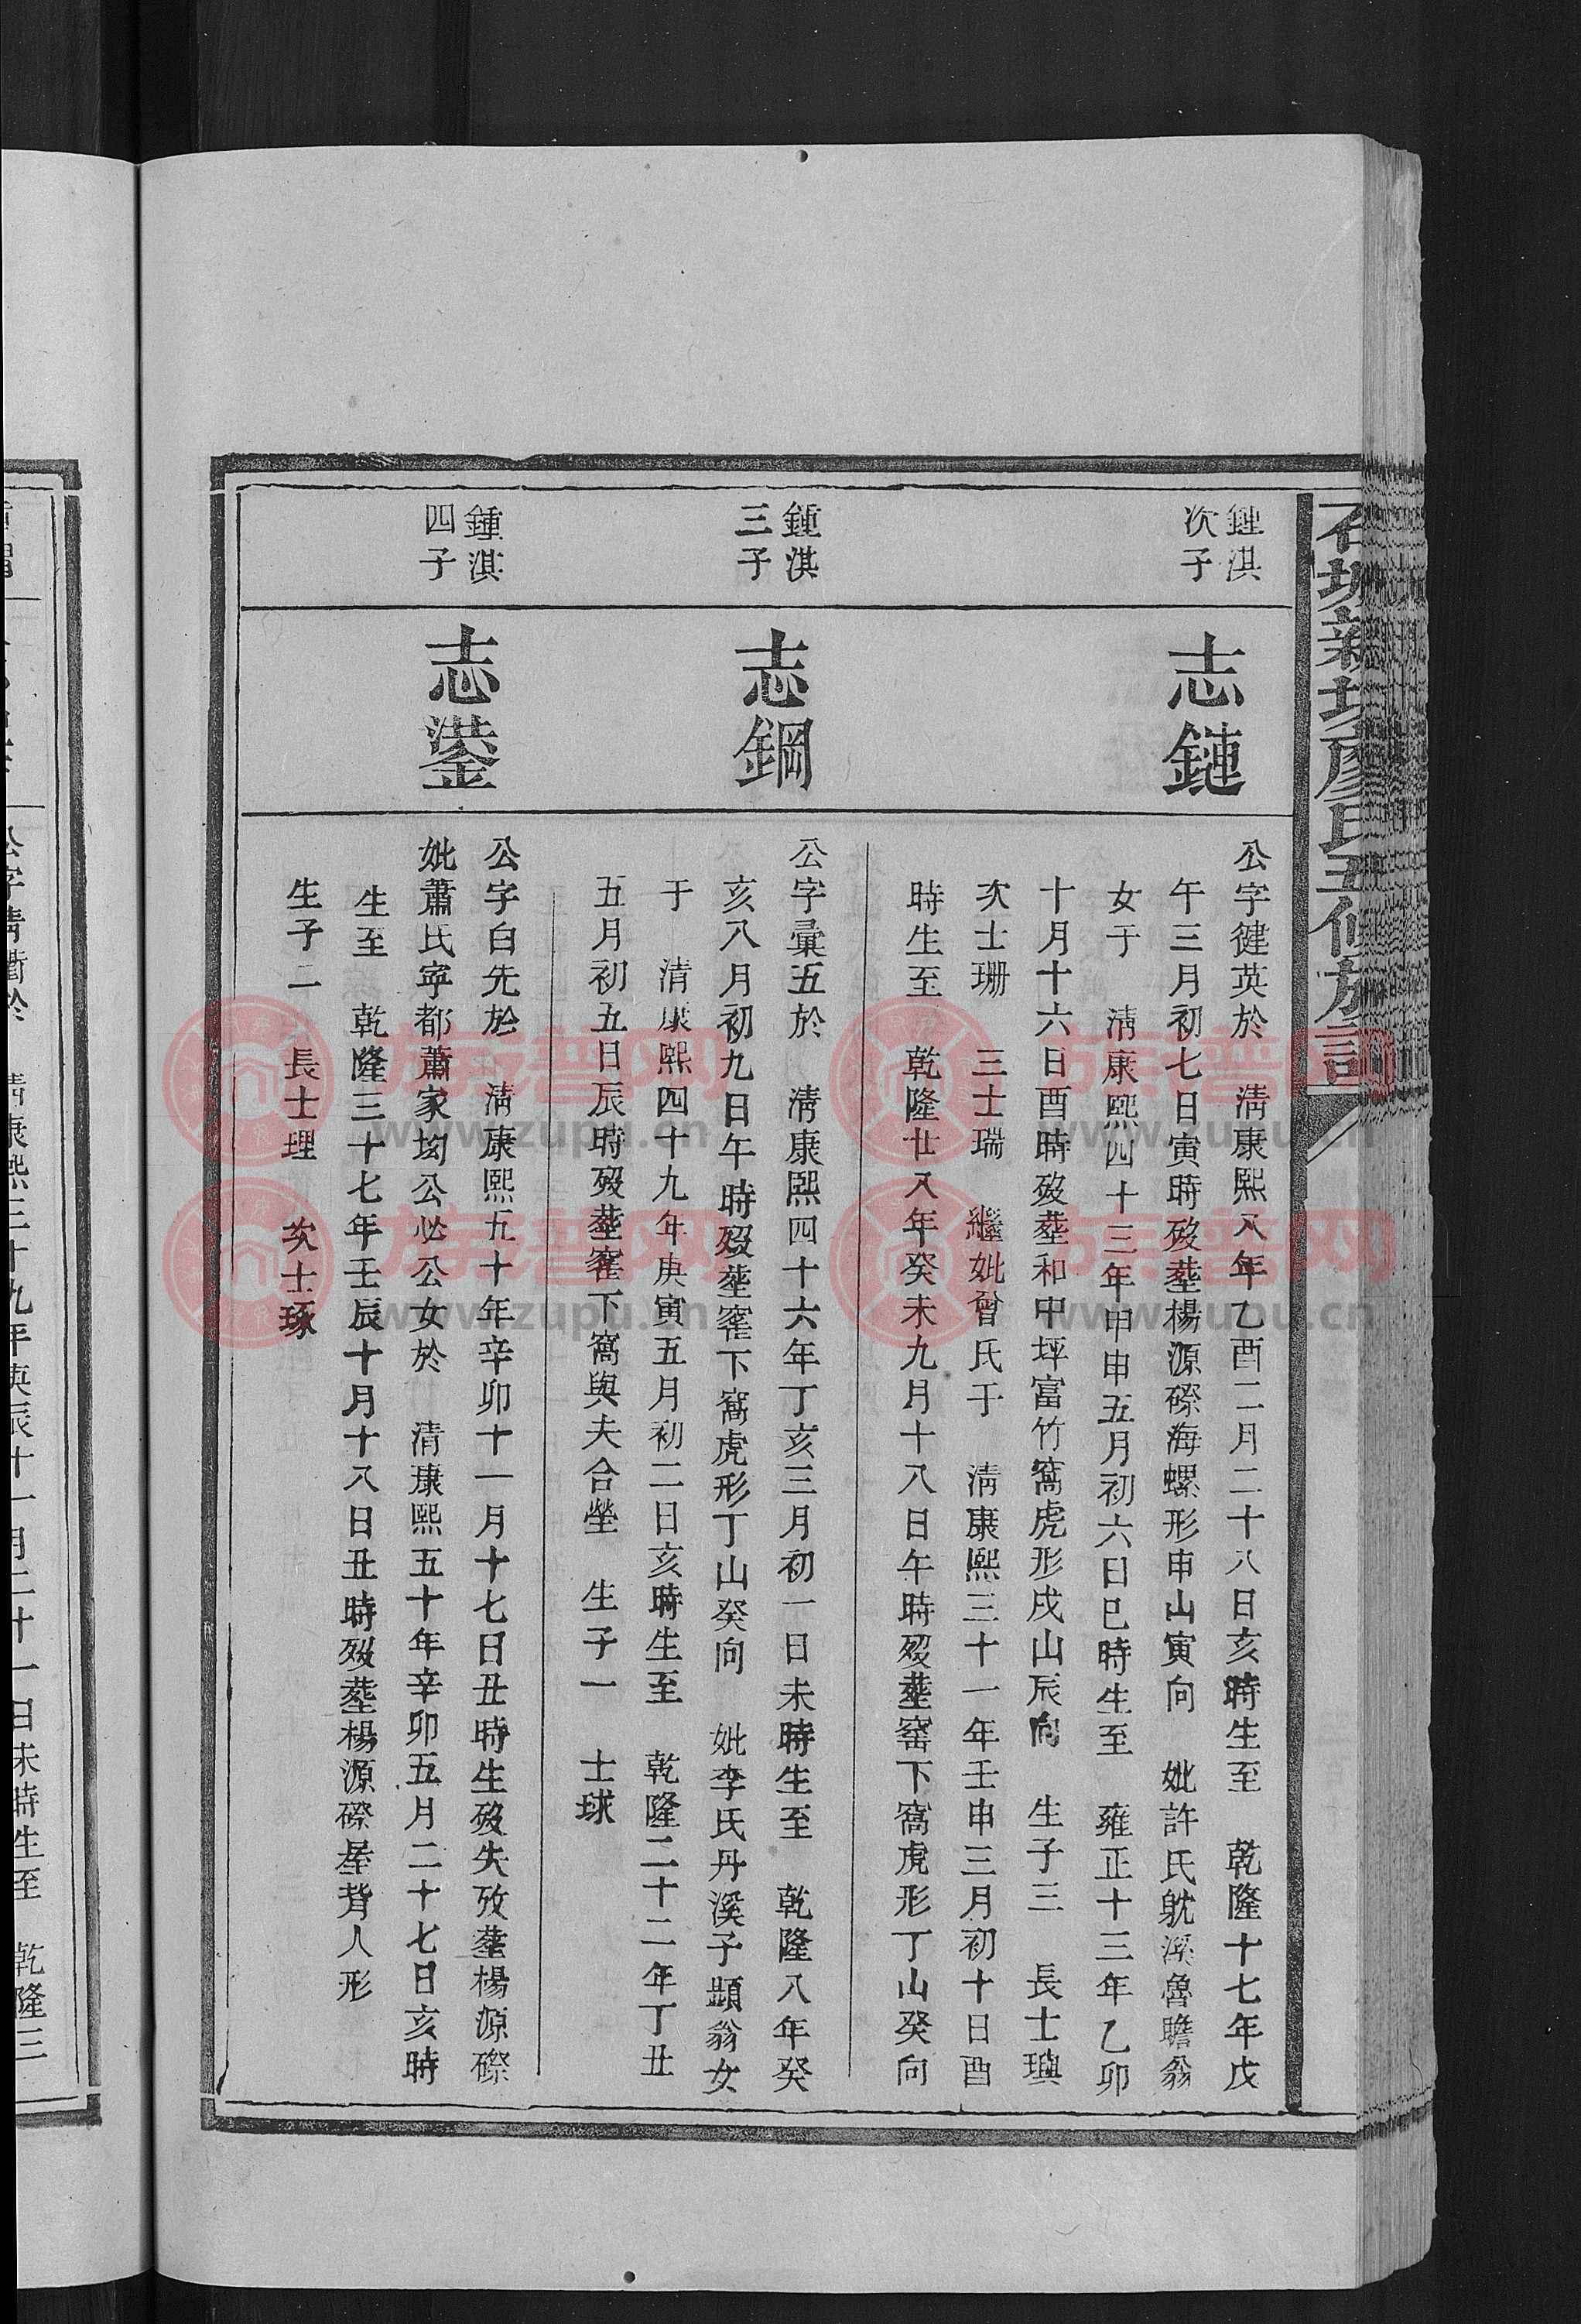 石城新坊廖氏五修族譜
鍾淇
次子
志鏈
公字健英於　清康熙八年乙酉二月二十八日亥時生至　乾隆十七年戊
午三月初七日寅時歿塟楊源磜海螺形申山寅向　妣許氏躭溪魯瞻翁
女于　清康熙四十三年甲申五月初六日巳時生至　雍正十三年乙卯
十月十六日酉時歿塟和中坪富竹窩虎形戌山辰向　生子三　長士璵
次士珊　三士瑞　繼妣曾氏于　清康熙三十一年壬申三月初十日酉
時生至　乾隆廿八年癸未九月十八日午時歿塟窰下窩虎形丁山癸向
鍾淇
三子
志鋼
公字彙五於　清康熙四十六年丁亥三月初一日未時生至　乾隆八年癸
亥八月初九日午時歿塟窰下窩虎形丁山癸向　妣李氏丹溪子顯翁女
于　清康熙四十九年庚寅五月初二日亥時生至　乾隆二十二年丁丑
五月初五日辰時歿塟窰下窩與夫合塋　生子一　士球
鍾淇
四子
志鍙
公字白先於　清康熙五十年辛卯十一月十七日丑時生歿失攷塟楊源磜
妣蕭氏寧都蕭家坳公必公女於　清康熙五十年辛卯五月二十七日亥時
生至　乾隆三十七年壬辰十月十八日丑時歿塟楊源磜屋背人形
生子二　長士理　次士琢
公字清衢於　清康熙三十九年庚辰十一月二十一日未時生至　乾隆三
族譜网
www.zupu.cn
族譜网
www.zupu.cn
族譜网
www.zupu.cn
族譜网
www.zupu.cn